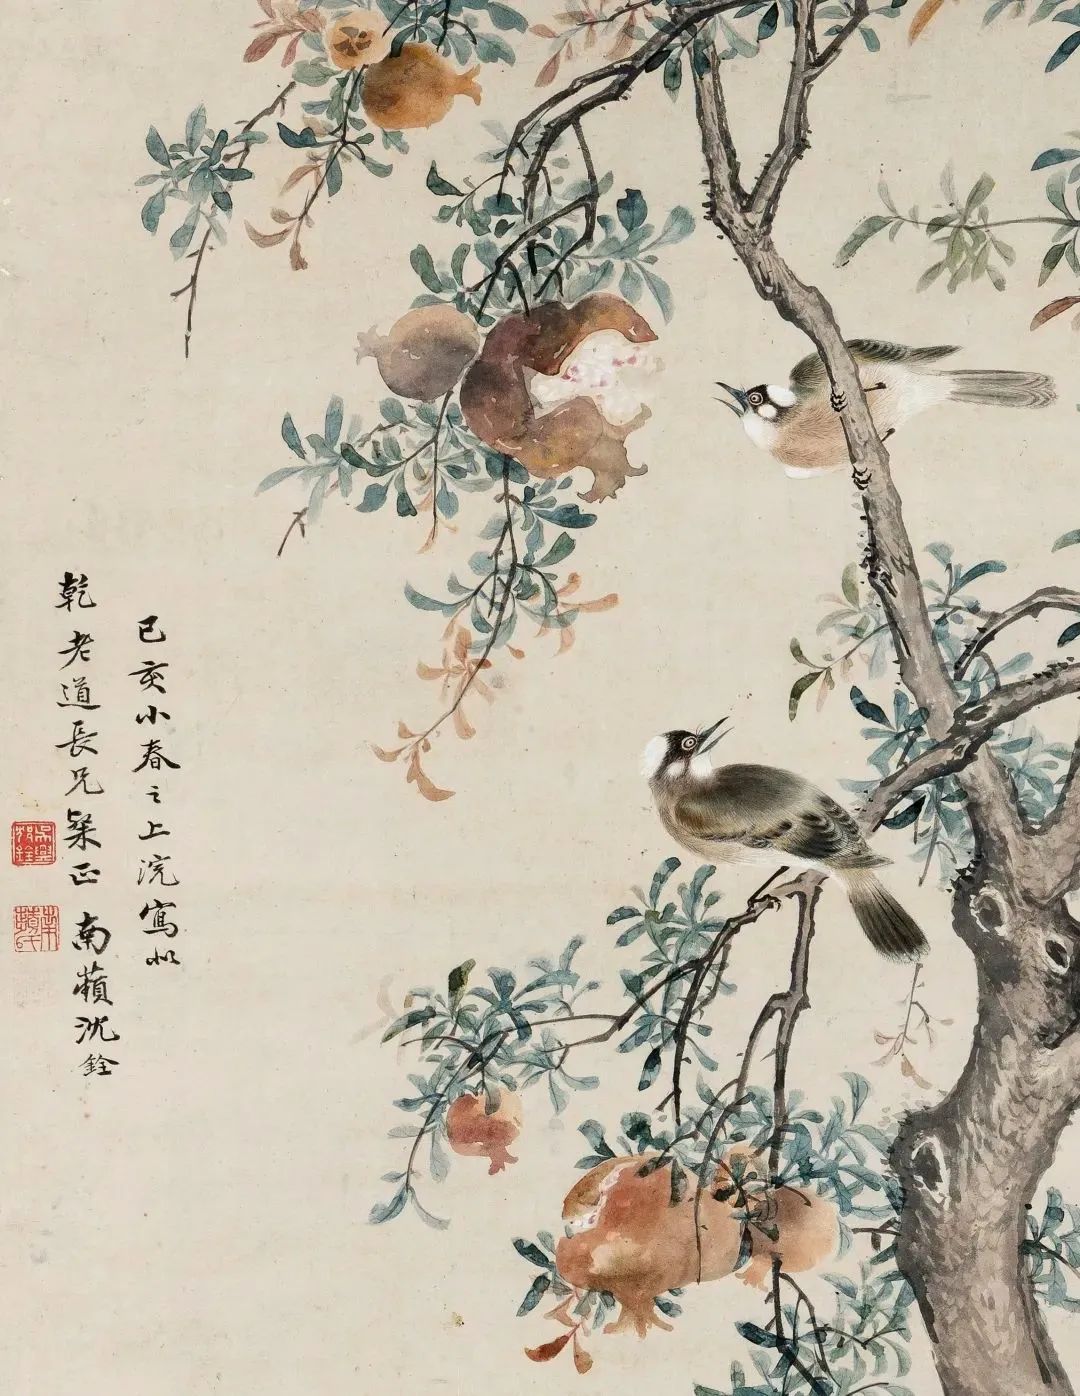 己亥小春之上浣寫似
乾老道長兄粲正 南蘋沈銓